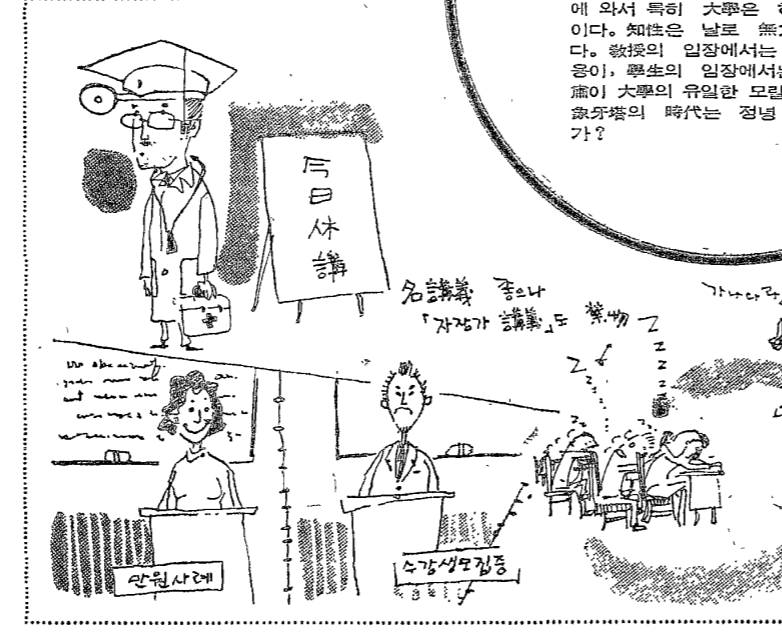 에 와서 특히 大學은
이다。知性은 날로 無
다。敎授의 입장에서는
용이, 學生의 입장에서는
庸이 大學의 유일한 모랄
象牙塔의 時代는 정녕
가?
今
日
休
講
名講義 좋으나
「자장가 講義」도 禁物
Z
Z
Z
가나다라
만원사례
수강생모집중